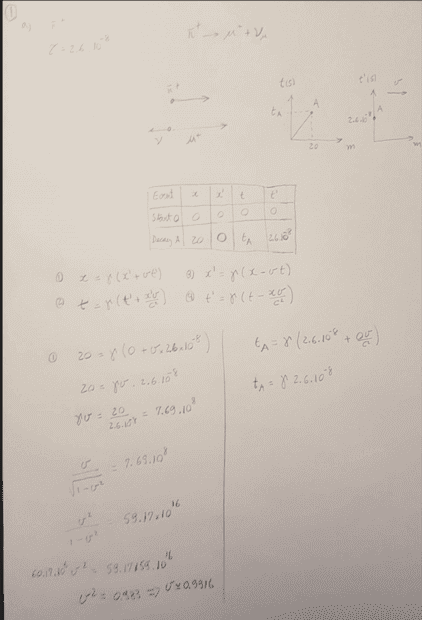 ①
a)
τ = 2.6 · 10⁻⁸
π⁺ → μ⁺ + ν_μ
π⁺
ν μ⁺
t(s)
t_A A
20 m
t'(s) v
A
2.6·10⁻⁸
m
Event x x' t t'
Start O 0 0 0 0
Decay A 20 0 t_A 2.6·10⁻⁸
① x = γ(x' + vt') ③ x' = γ(x - vt)
② t = γ(t' + x'v/c²) ④ t' = γ(t - xv/c²)
① 20 = γ(0 + v · 2.6 · 10⁻⁸)
20 = γv · 2.6 · 10⁻⁸
γv = 20/2.6·10⁻⁸ = 7.69 · 10⁸
v/√1-v² = 7.69 · 10⁸
v²/1-v² = 59.17 · 10¹⁶
v² = 59.17159 · 10¹⁶
v² = 0.983 ⇒ v ≈ 0.9916
t_A = γ(2.6 · 10⁻⁸ + 0v/c²)
t_A = γ 2.6 · 10⁻⁸